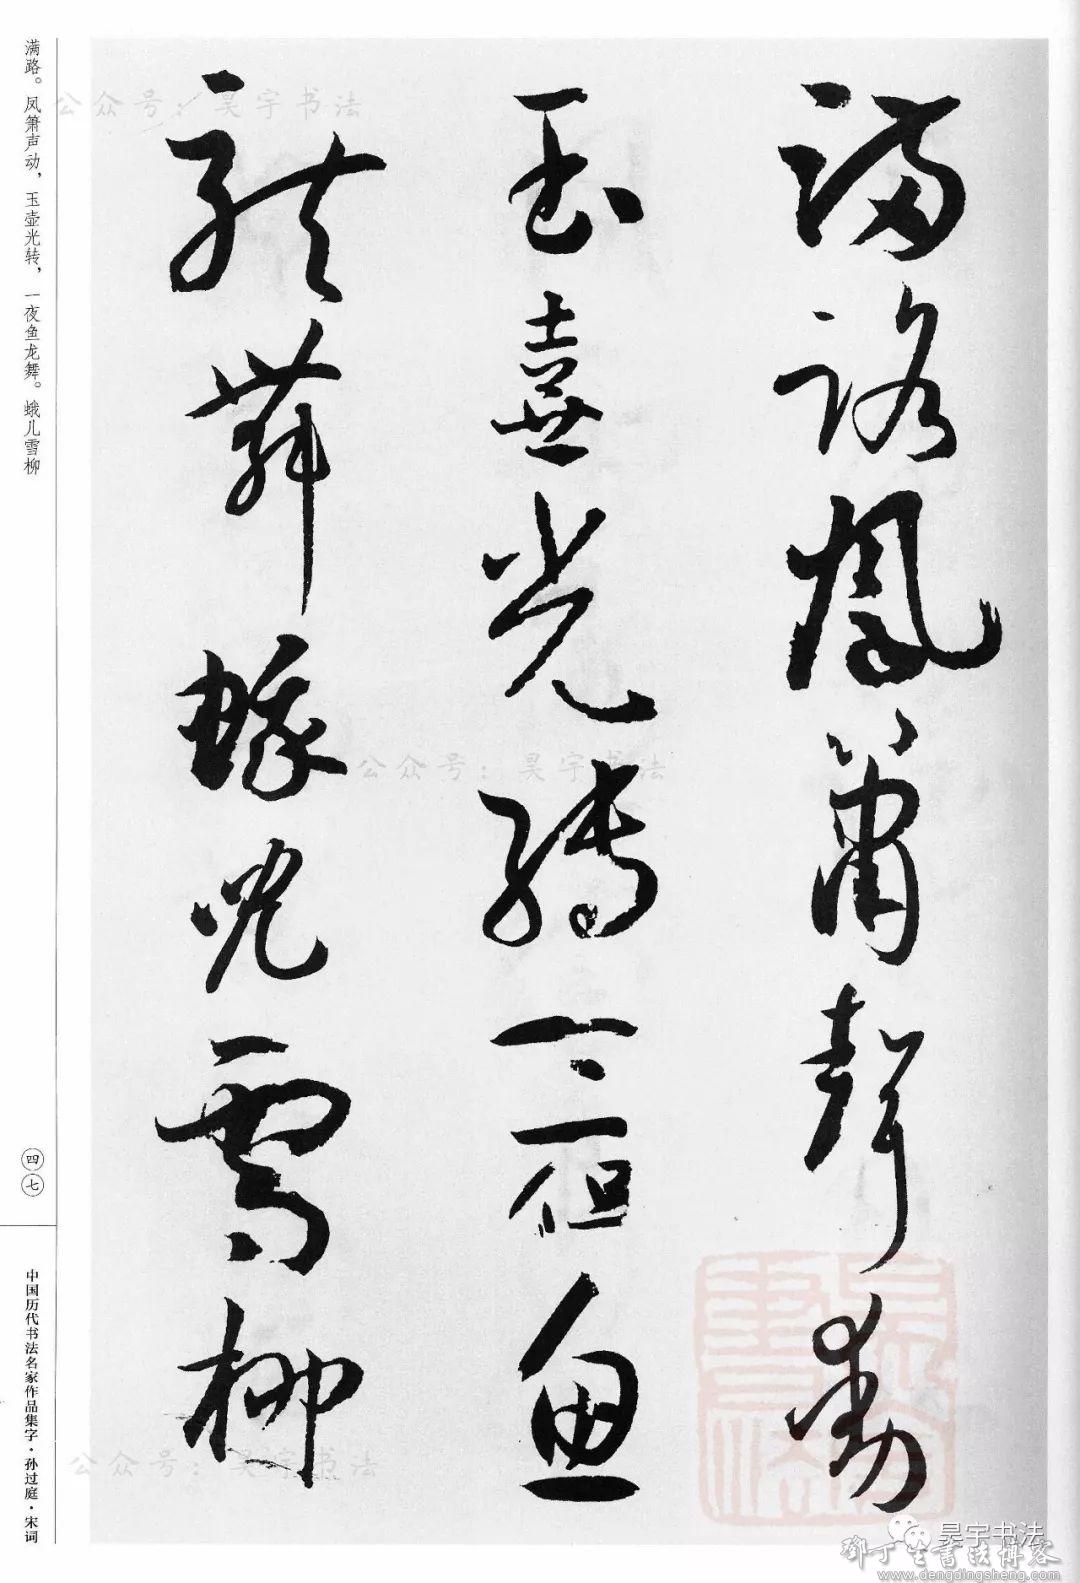 滿路鳳簫聲動
玉壺光轉一夜魚
龍舞蛾兒雪柳
满路。凤箫声动，玉壶光转，一夜鱼龙舞。蛾儿雪柳
四七
中国历代书法名家作品集字·孙过庭·宋词
公众号：昊宇书法
公众号：昊宇书法
公众号：昊宇书法
昊宇书法
鄧丁生書法博客
www.dengdingsheng.com